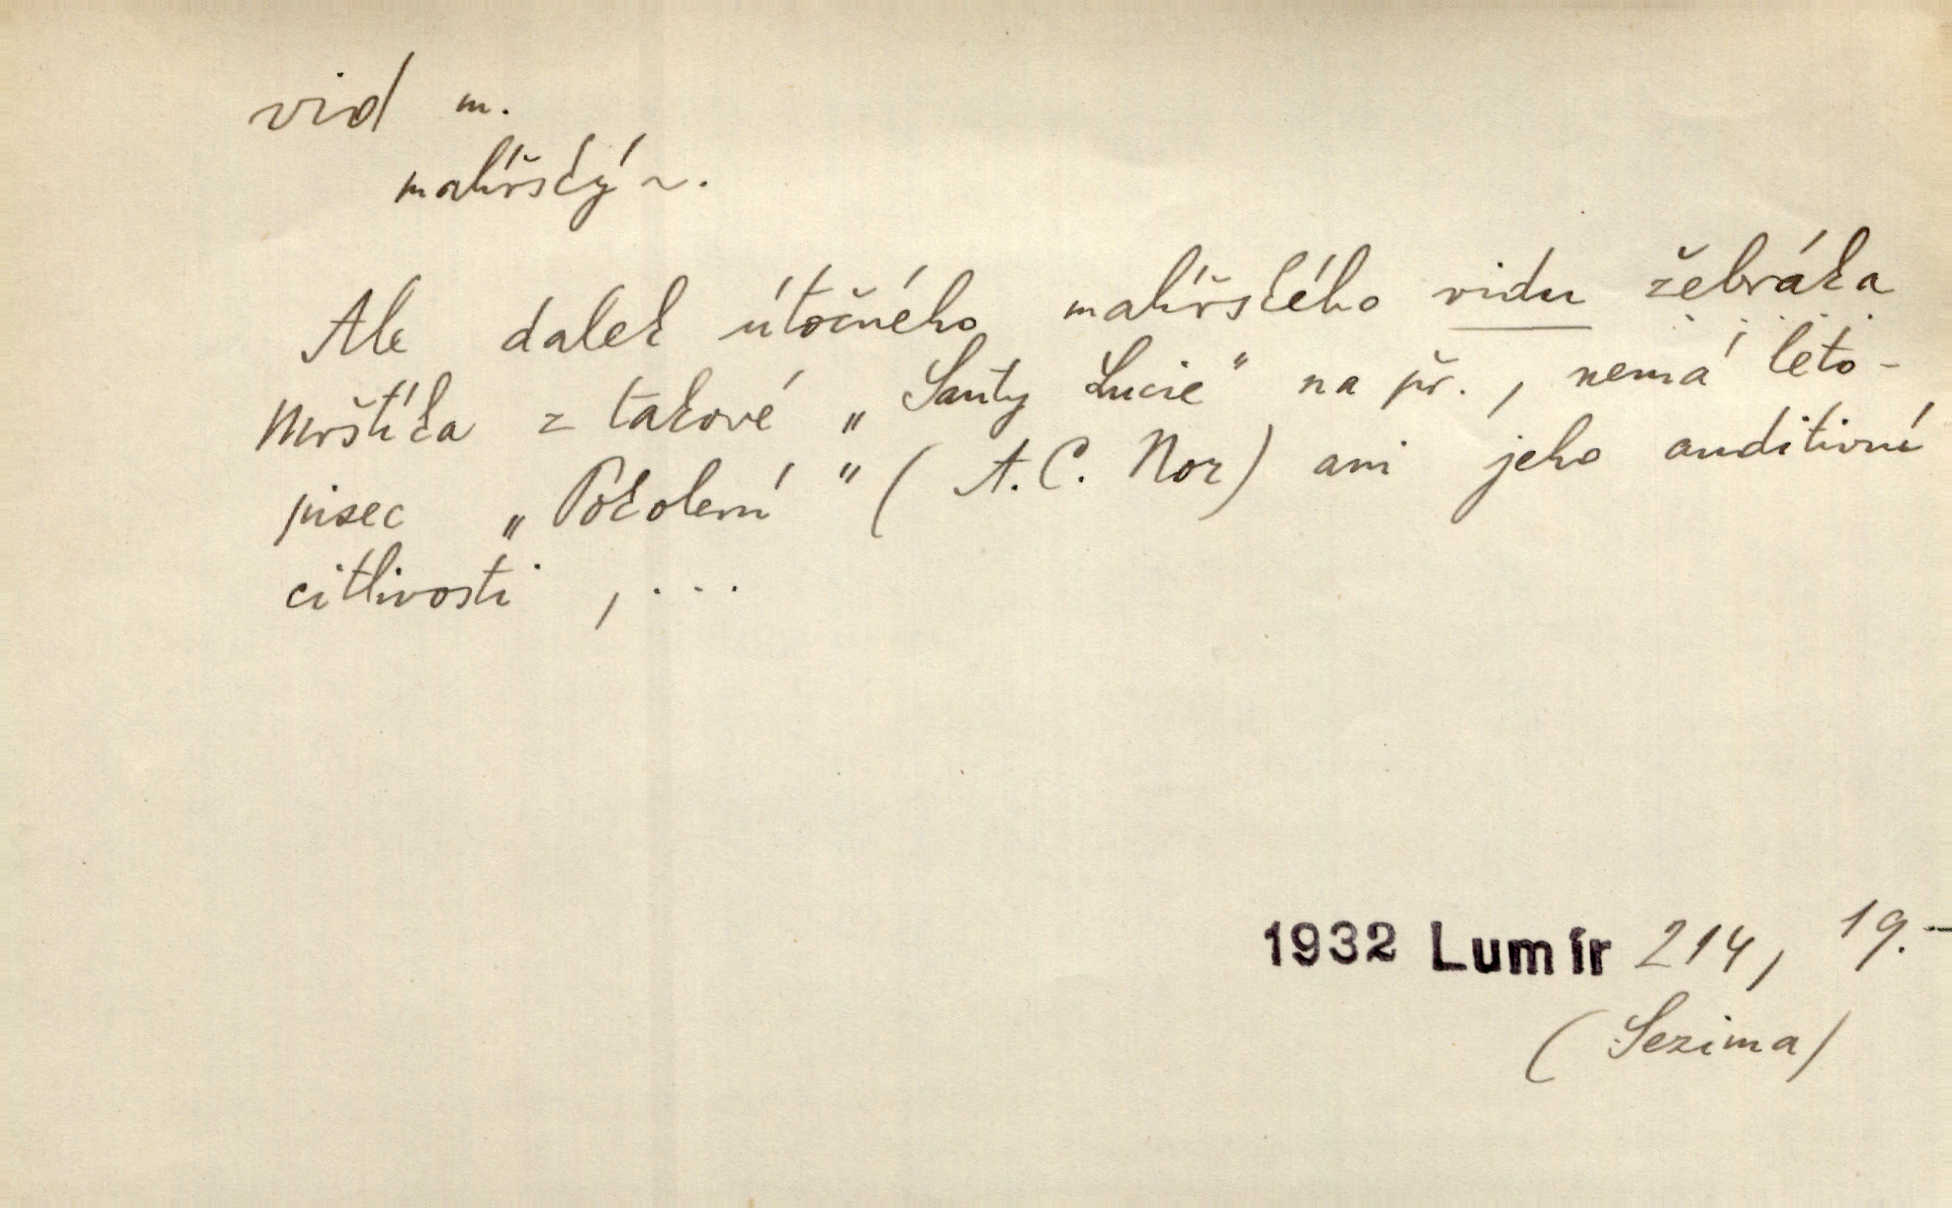 vid m.
malířský ~.
Ale dalek útočného malířského vidu žebráka
Mrštíka z takové „Santy Lucie" na př., nemá leto-
pisec „Pokolení" (A. C. Nor) ani jeho auditivní
citlivosti, ...
1932 Lumír 214, 19.-
(Sezima)